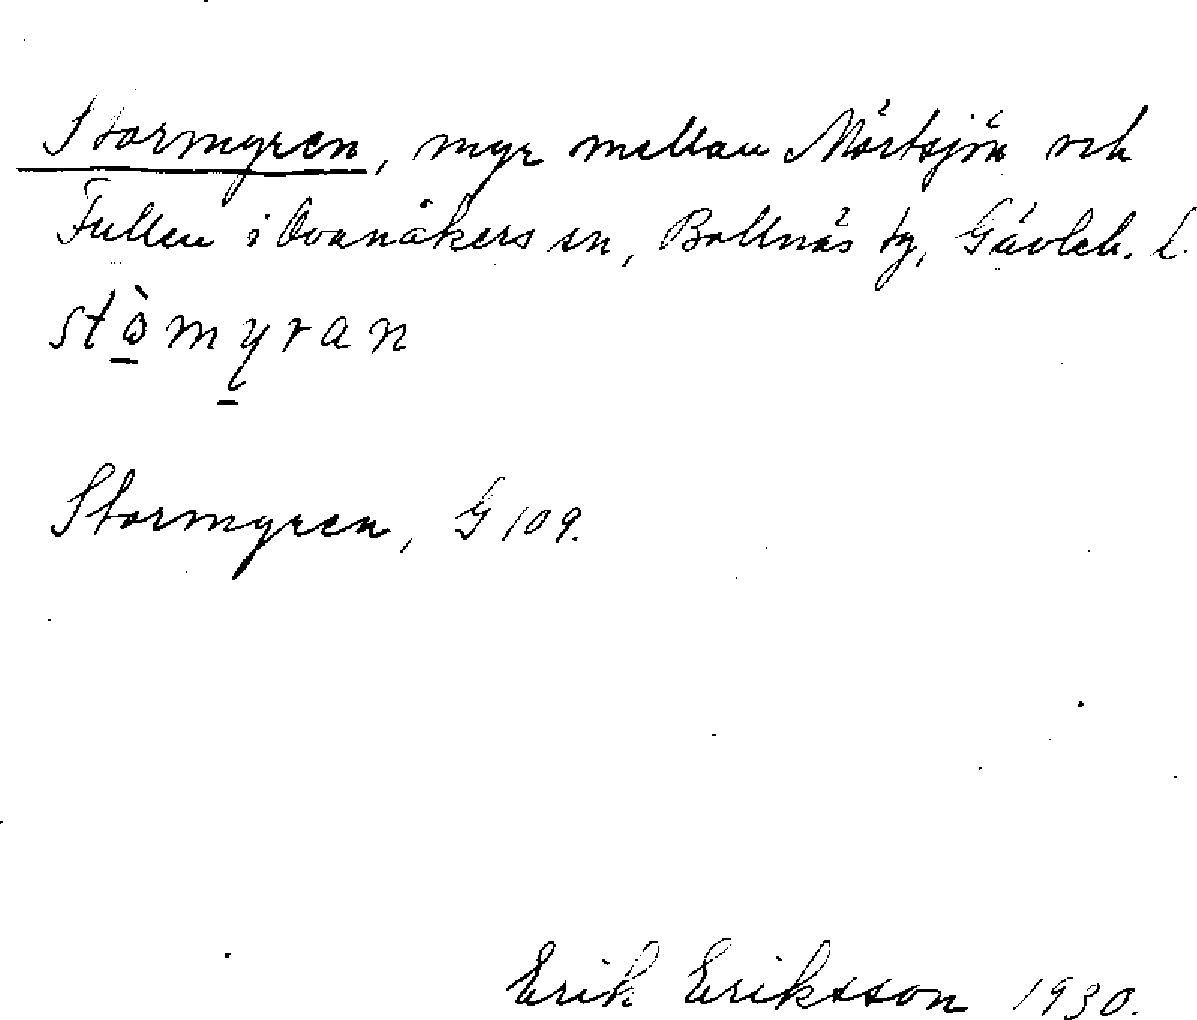 Stormyren, myr mellan Mörtsjön och
Fullen i Ovanåkers sn, Bollnäs tg, Gävleb. l.
stòmyran
Stormyren, G 109.
Erik Eriksson 1930.